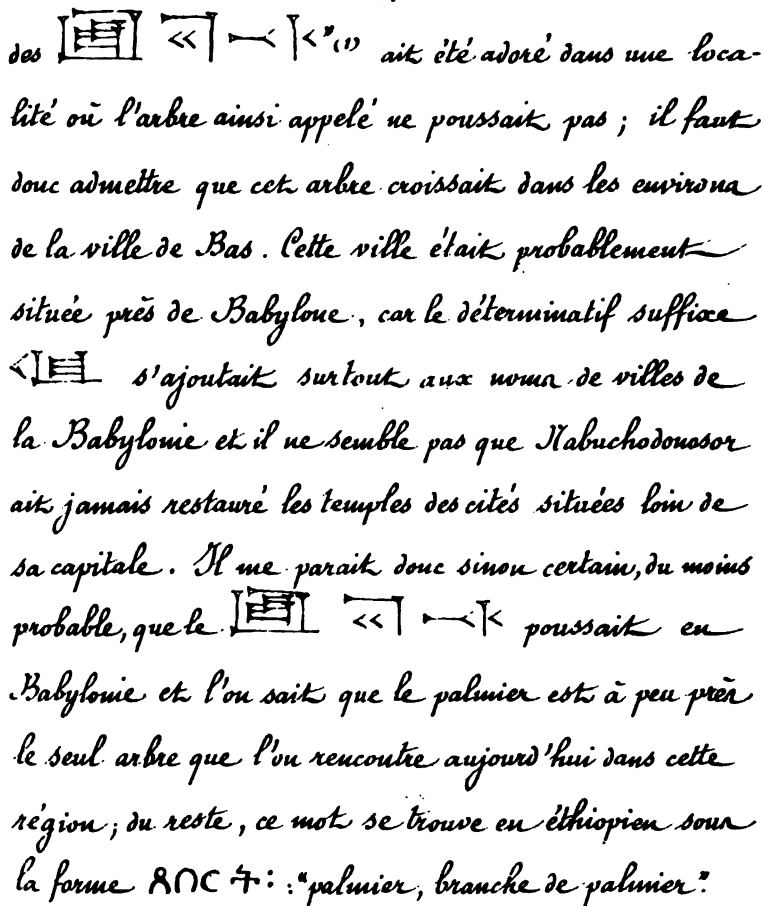 des " (1) ait été adoré dans une loca-
lité où l'arbre ainsi appelé ne poussait pas ; il faut
donc admettre que cet arbre croissait dans les environs
de la ville de Bas. Cette ville était probablement
située près de Babylone, car le déterminatif suffixe
𒆠 s'ajoutait surtout aux noms de villes de
la Babylonie et il ne semble pas que Nabuchodonosor
ait jamais restauré les temples des cités situées loin de
sa capitale. Il me parait donc sinon certain, du moins
probable, que le poussait en
Babylonie et l'on sait que le palmier est à peu près
le seul arbre que l'on rencontre aujourd'hui dans cette
région ; du reste, ce mot se trouve en éthiopien sous
la forme ጸበርት: : "palmier, branche de palmier".